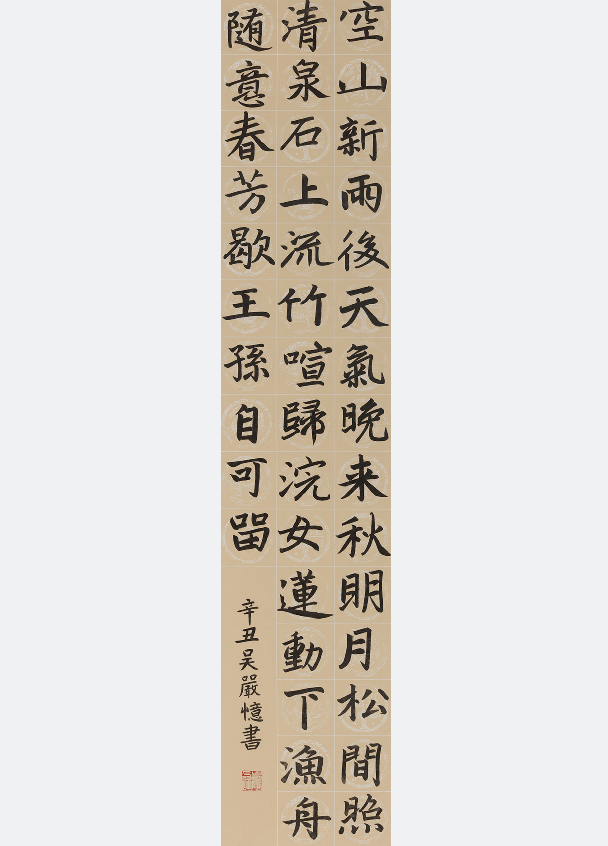 空山新雨後天氣晚来秋明月松間照
清泉石上流竹喧歸浣女蓮動下漁舟
随意春芳歇王孫自可留
辛丑吴嚴憶書